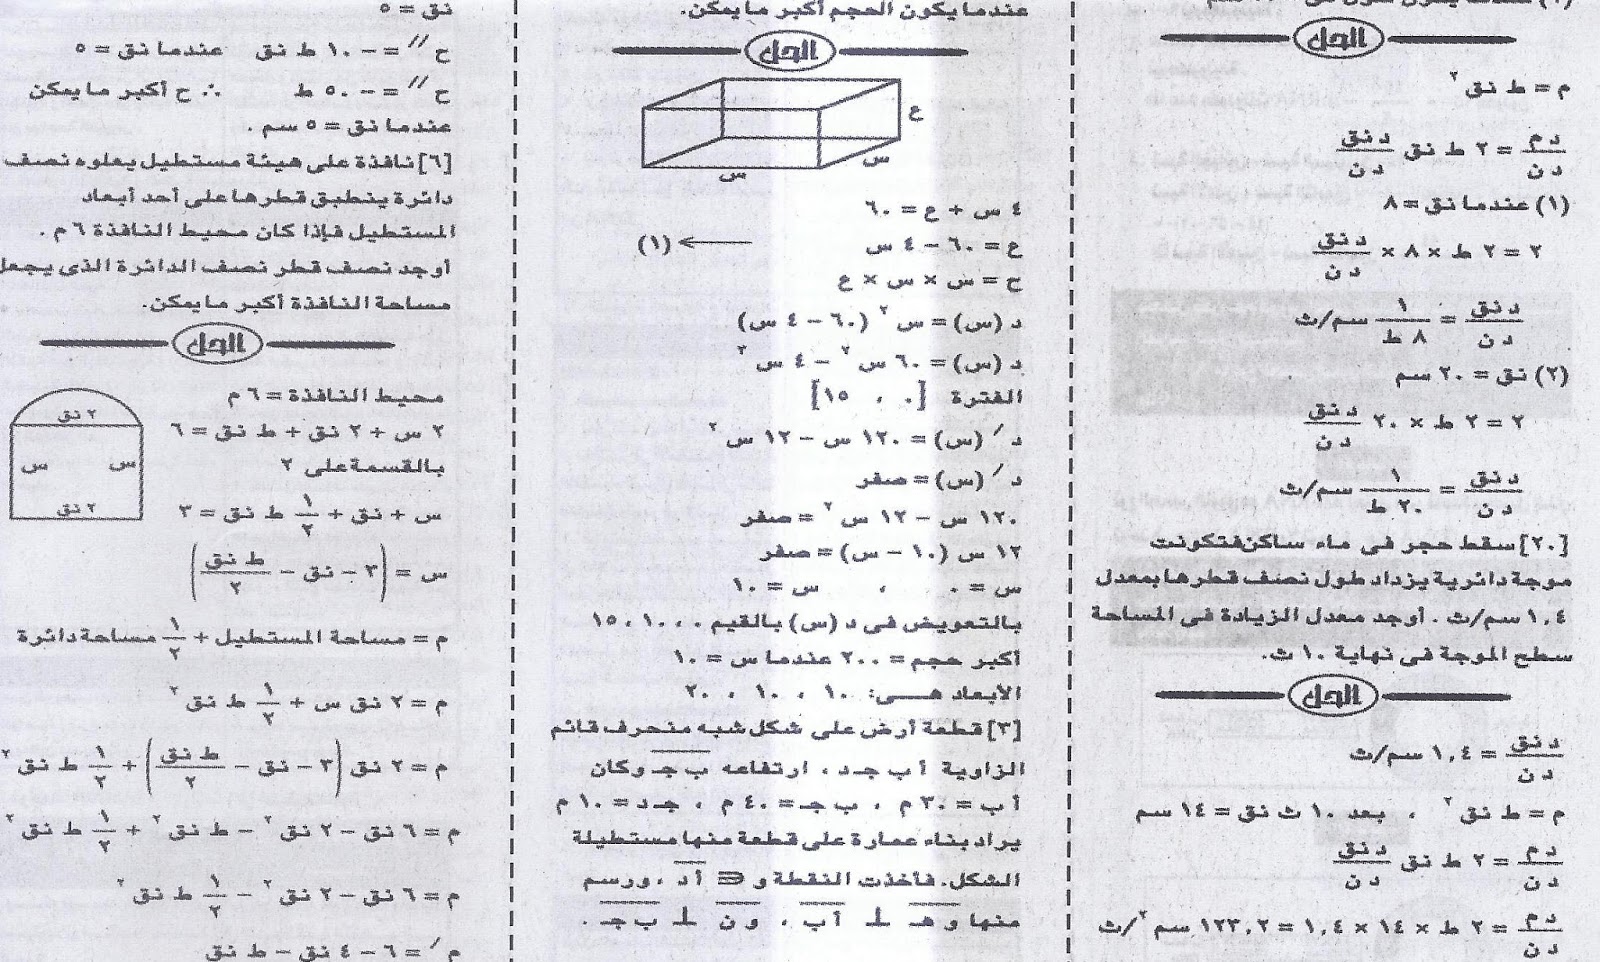 الحل
م = ط نق ٢
د م / د ن = ٢ ط نق د نق / د ن
(١) عندما نق = ٨
٢ = ٢ ط × ٨ × د نق / د ن
د نق / د ن = ١ / ٨ ط سم/ث
(٢) نق = ٢٠ سم
٢ = ٢ ط × ٢٠ د نق / د ن
د نق / د ن = ١ / ٢٠ ط سم/ث
[٢٠] سقط حجر فى ماء ساكن فتكونت
موجة دائرية يزداد طول نصف قطرها بمعدل
١,٤ سم/ث . أوجد معدل الزيادة فى المساحة
سطح الموجة فى نهاية ١٠ ث.
الحل
د نق / د ن = ١,٤ سم/ث
م = ط نق ٢ ، بعد ١٠ ث نق = ١٤ سم
د م / د ن = ٢ ط نق د نق / د ن
د م / د ن = ٢ ط × ١٤ × ١,٤ = ١٢٣,٢ سم ٢/ث
عندما يكون الحجم أكبر ما يمكن.
الحل
ع
س
س
٤ س + ع = ٦٠
ع = ٦٠ – ٤ س ← (١)
ح = س × س × ع
د (س) = س ٢ (٦٠ – ٤ س)
د (س) = ٦٠ س ٢ – ٤ س ٢
الفترة [٠ ، ١٥]
د ′ (س) = ١٢٠ س – ١٢ س ٢
د ′ (س) = صفر
١٢٠ س – ١٢ س ٢ = صفر
١٢ س (١٠ – س) = صفر
س = ٠ ، س = ١٠
بالتعويض فى د (س) بالقيم ٠ ، ١٠ ، ١٥
أكبر حجم = ٢٠٠ عندما س = ١٠
الأبعاد هــى: ١٠ ، ١٠ ، ٢٠
[٣] قطعة أرض على شكل شبه منحرف قائم
الزاوية أ ب جـ د ، ارتفاعه ب جـ وكان
أ ب = ٣٠ م ، ب جـ = ٤٠ م ، جـ د = ١٠ م
يراد بناء عمارة على قطعة منها مستطيلة
الشكل. فأخذت النقطة و ∈ أ د ، ورسم
منها و هـ ⊥ أ ب ، و ن ⊥ ب جـ .
نق = ٥
ح // = – ١٠ ط نق عندما نق = ٥
ح // = – ٥٠ ط ∴ ح أكبر ما يمكن
عندما نق = ٥ سم .
[٦] نافذة على هيئة مستطيل يعلوه نصف
دائرة ينطبق قطرها على أحد أبعاد
المستطيل فإذا كان محيط النافذة ٦ م .
أوجد نصف قطر نصف الدائرة الذى يجعل
مساحة النافذة أكبر ما يمكن.
الحل
محيط النافذة = ٦ م
٢ س + ٢ نق + ط نق = ٦
بالقسمة على ٢
س + نق + ١ / ٢ ط نق = ٣
٢ نق
س س
٢ نق
س = (٣ – نق – ط نق / ٢)
م = مساحة المستطيل + ١ / ٢ مساحة دائرة
م = ٢ نق س + ١ / ٢ ط نق ٢
م = ٢ نق (٣ – نق – ط نق / ٢) + ١ / ٢ ط نق ٢
م = ٦ نق – ٢ نق ٢ – ط نق ٢ + ١ / ٢ ط نق ٢
م = ٦ نق – ٢ نق ٢ – ١ / ٢ ط نق ٢
م ′ = ٦ – ٤ نق – ط نق